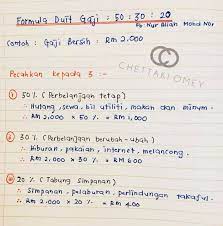 Formula Duit Gaji : 50 : 30 : 20
Fb: Nur Aliah Mohd Nor
Contoh : Gaji Bersih : RM 2.000
CHETTAKLOMEY
Pecahkan kepada 3 :-
① 50% (Perbelanjaan tetap)
∴ Hutang, sewa, bil utiliti, makan dan minum.
∴ RM 2.000 x 50 % = RM 1,000
② 30% (Perbelanjaan berubah-ubah)
∴ hiburan, pakaian, internet, melancong.
∴ RM 2.000 x 30 % = RM 600
③ 20% (Tabung Simpanan)
∴ Simpanan, pelaburan, perlindungan takaful.
∴ RM 2.000 x 20 % = RM 400